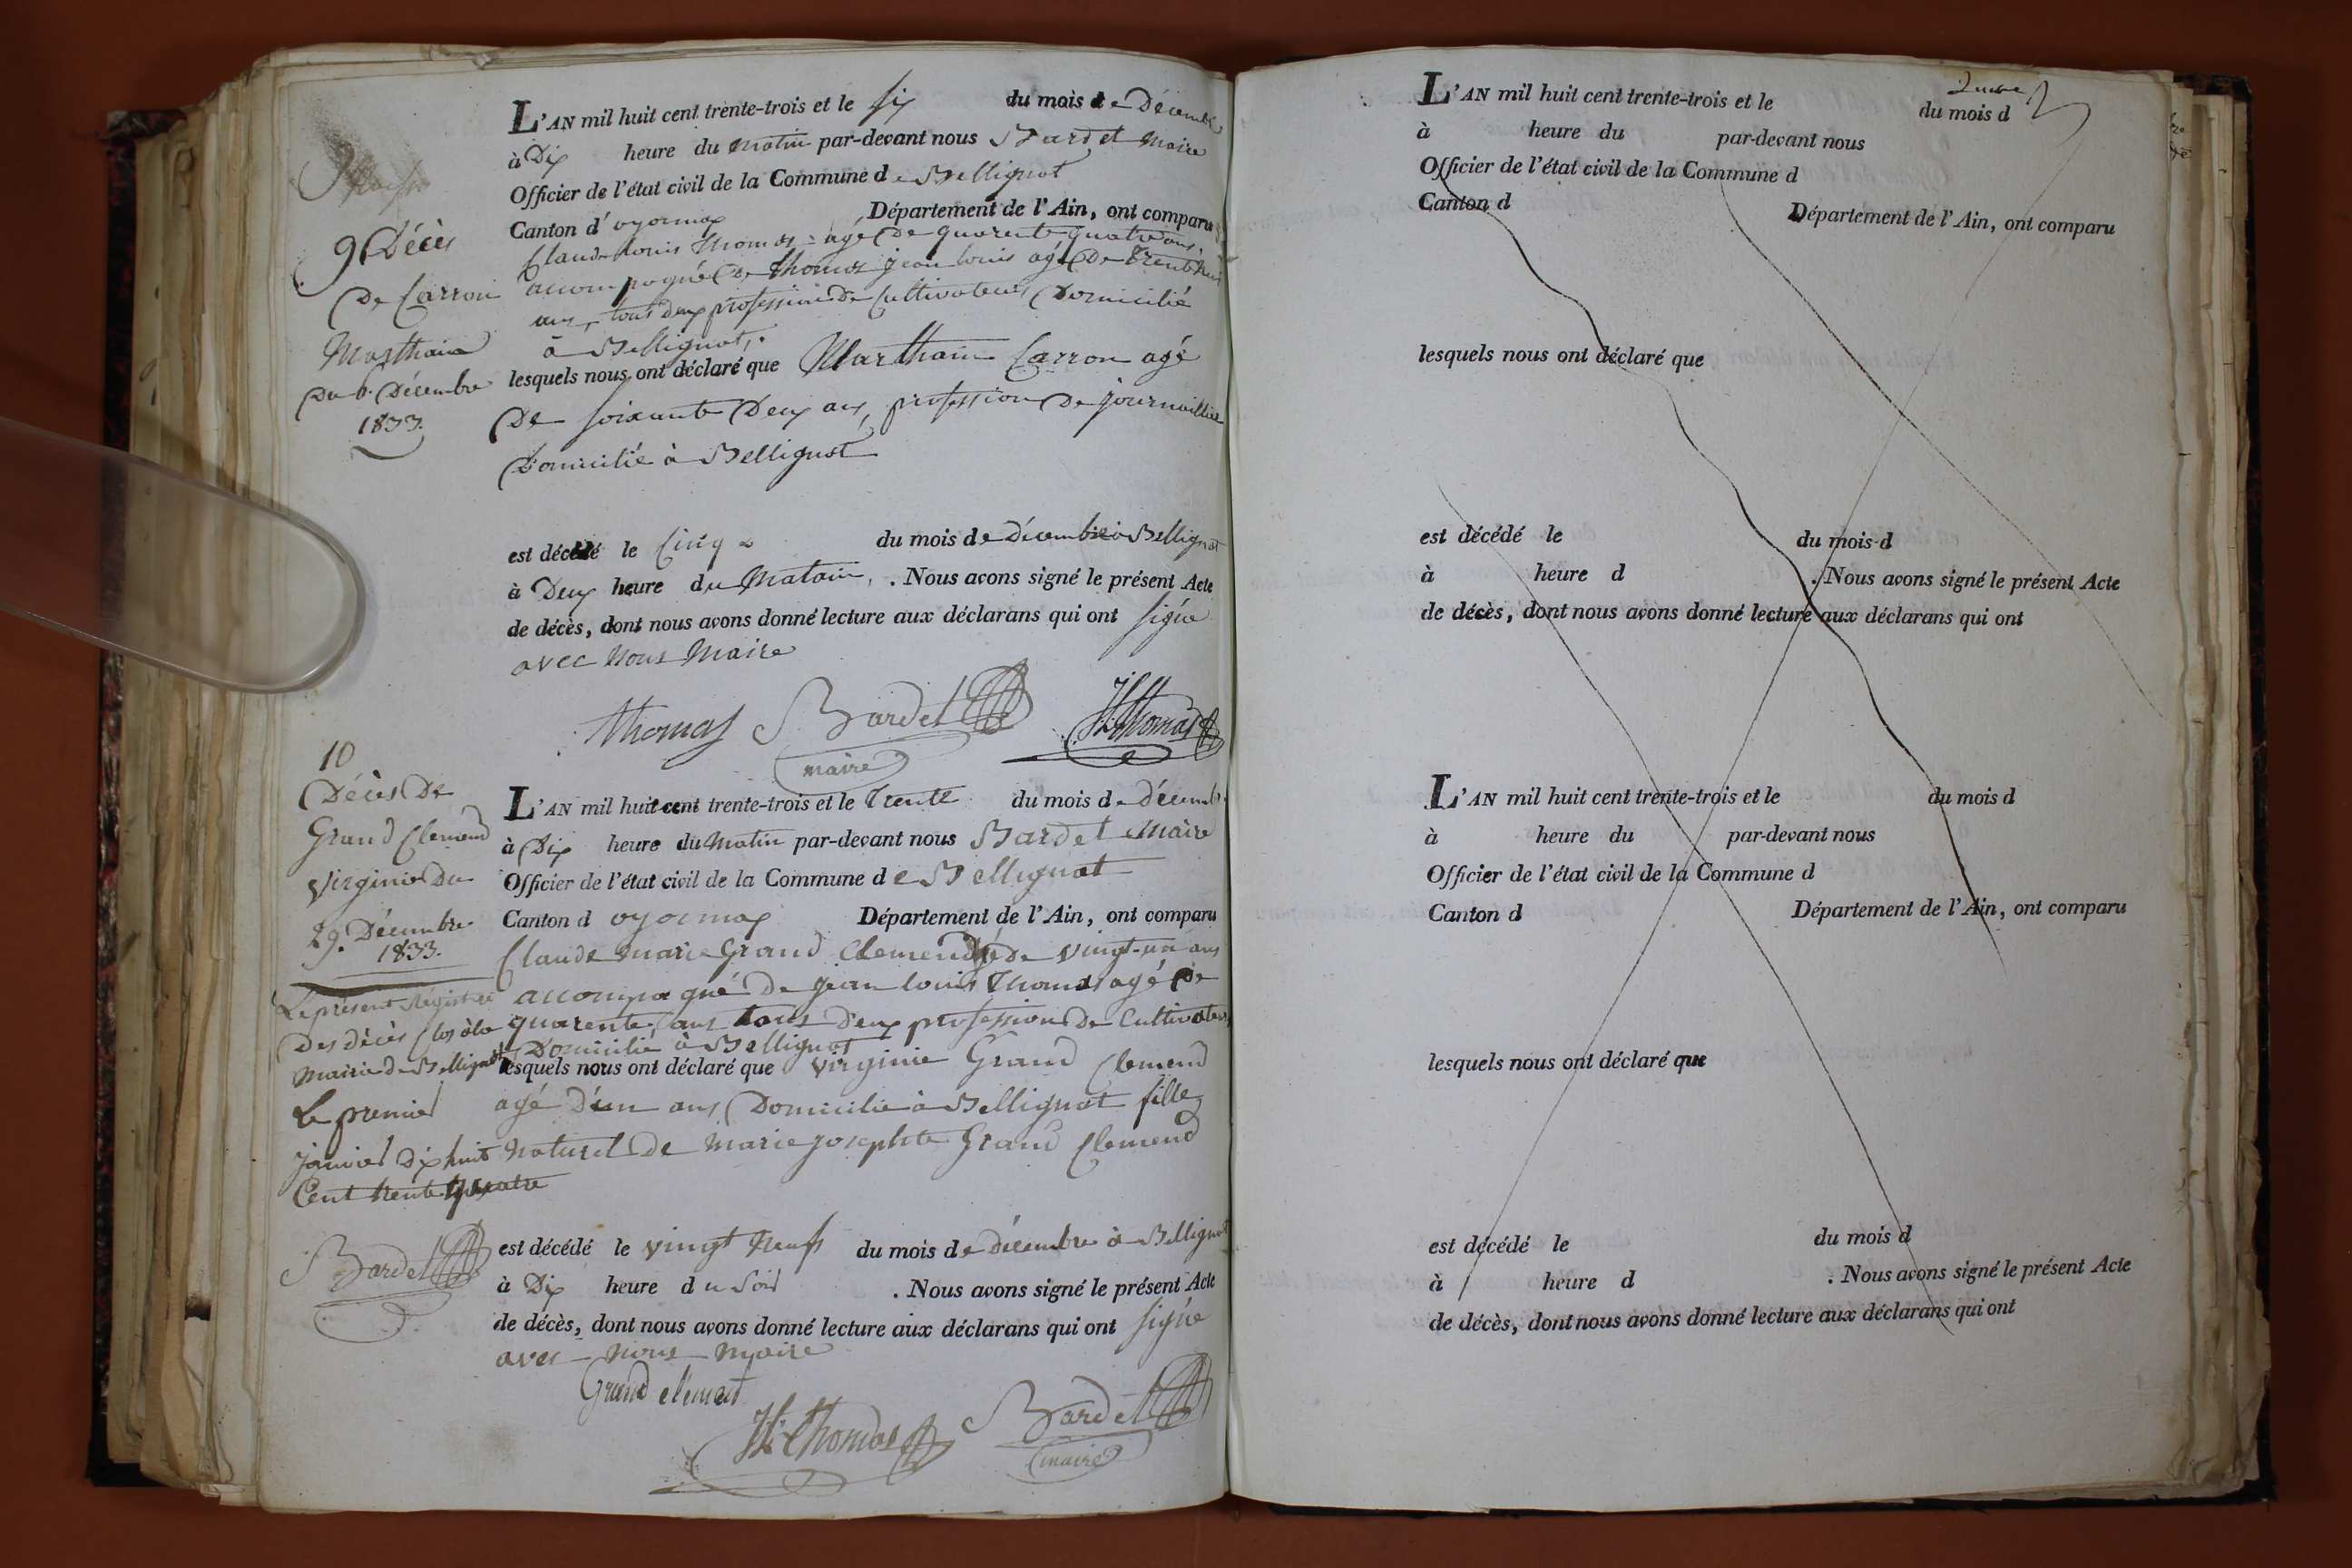 9 Décès
De Carron
Marthain
Du 6 Décembre
1833.
L'AN mil huit cent trente-trois et le six du mois de Décembre
à Dix heure du matin par-devant nous Bardet Maire
Officier de l'état civil de la Commune de Bellignat
Canton d'oyonnax Département de l'Ain, ont comparu
Claude Louis Thomas agé De quarente quatre ans,
accompagné De thomas jean louis agé De trente huit
ans, tous deux profession De Cultivateurs Domicilié
à Bellignat,
lesquels nous ont déclaré que Marthain Carron agé
De soixante Deux ans, profession De journaillier
Domicilié à Bellignat
est décédé le Cinq du mois de Décembre à Bellignat
à Deux heure du Matain, . Nous avons signé le présent Acte
de décès, dont nous avons donné lecture aux déclarans qui ont signé
avec Nous Maire
Thomas Bardet JLThomas
maire
10
Décès De
Grand Clemend
Virginie Du
29. Décembre
1833.
L'AN mil huit cent trente-trois et le Trente du mois de décembre
à Dix heure du Matin par-devant nous Bardet Maire
Officier de l'état civil de la Commune de Bellignat
Canton d oyonnax Département de l'Ain, ont comparu
Claude Marie Grand Clemend agé de vingt-un ans
accompagné De jean louis Thomas agé De
quarente, ans tous deux profession De Cultivateurs
Domicilié à Bellignat
lesquels nous ont déclaré que virginie Grand Clemend
agé d'un ans Domicilie à Bellignat fille
Naturel de Marie josephte Grand Clemend
est décédé le vingt Neufs du mois de décembre à Bellignat
à Dix heure du Soir . Nous avons signé le présent Acte
de décès, dont nous avons donné lecture aux déclarans qui ont signé
avec Nous Maire
Grand clement
JLThomas Bardet
maire
Le présent Régistre
Des décès clos à la
Mairie de Bellignat
Le premier
janvier Dix huit
Cent trente quatre
Bardet
L'AN mil huit cent trente-trois et le du mois d
à heure du par-devant nous
Officier de l'état civil de la Commune d
Canton d Département de l'Ain, ont comparu
lesquels nous ont déclaré que
est décédé le du mois d
à heure d . Nous avons signé le présent Acte
de décès, dont nous avons donné lecture aux déclarans qui ont
L'AN mil huit cent trente-trois et le du mois d
à heure du par-devant nous
Officier de l'état civil de la Commune d
Canton d Département de l'Ain, ont comparu
lesquels nous ont déclaré que
est décédé le du mois d
à heure d . Nous avons signé le présent Acte
de décès, dont nous avons donné lecture aux déclarans qui ont